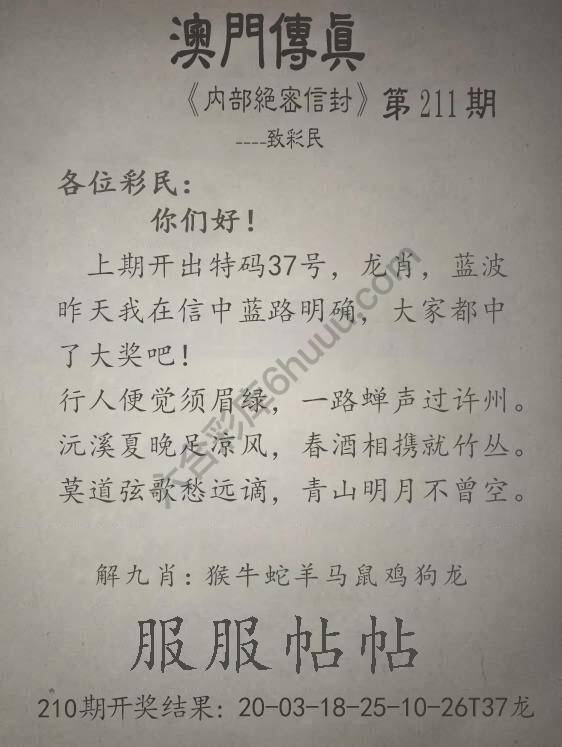 澳門傳真
《内部絕密信封》第211期
----致彩民
各位彩民：
你们好！
上期开出特码37号，龙肖，蓝波
昨天我在信中蓝路明确，大家都中
了大奖吧！
行人便觉须眉绿，一路蝉声过许州。
沅溪夏晚足凉风，春酒相携就竹丛。
莫道弦歌愁远谪，青山明月不曾空。
解九肖：猴牛蛇羊马鼠鸡狗龙
服服帖帖
210期开奖结果：20-03-18-25-10-26T37龙
六合彩库6huuu.com